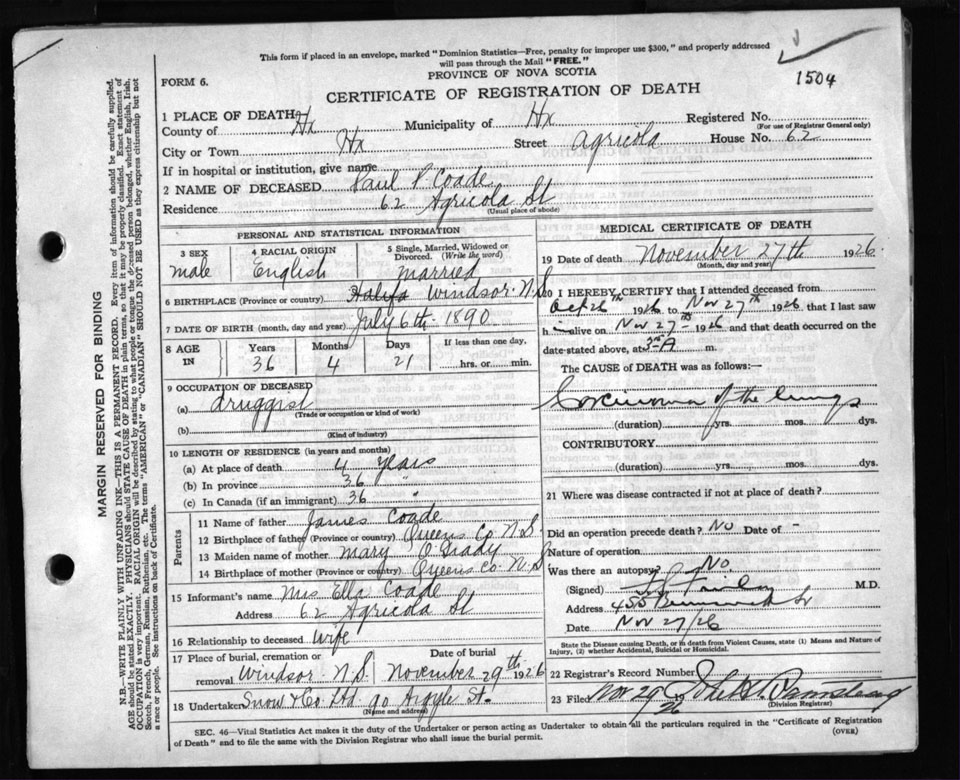 This form if placed in an envelope, marked "Dominion Statistics—Free, penalty for improper use $300," and properly addressed
will pass through the Mail "FREE."
1504
FORM 6.
PROVINCE OF NOVA SCOTIA
CERTIFICATE OF REGISTRATION OF DEATH
1 PLACE OF DEATH
County of Hx Municipality of Hx Registered No.
(For use of Registrar General only)
City or Town Hx Street Agricola House No. 62
If in hospital or institution, give name
2 NAME OF DECEASED Paul P Coade
Residence 62 Agricola St
(Usual place of abode)
PERSONAL AND STATISTICAL INFORMATION
3 SEX male
4 RACIAL ORIGIN English
5 Single, Married, Widowed or Divorced. (Write the word) married
6 BIRTHPLACE (Province or country) Halifa Windsor. N.S
7 DATE OF BIRTH (month, day and year) July 6th 1890
8 AGE IN Years 36 Months 4 Days 21 If less than one day, hrs. or min.
9 OCCUPATION OF DECEASED
(a) druggist
(Trade or occupation or kind of work)
(b)
(Kind of industry)
10 LENGTH OF RESIDENCE (in years and months)
(a) At place of death 4 years
(b) In province 36 "
(c) In Canada (if an immigrant) 36 "
Parents
11 Name of father James Coade
12 Birthplace of father (Province or country) Queens Co N.S.
13 Maiden name of mother Mary O'Grady
14 Birthplace of mother (Province or country) Queens Co. N.S
15 Informant's name Mrs Ella Coade
Address 62 Agricola St
16 Relationship to deceased Wife
17 Place of burial, cremation or removal Windsor N.S.
Date of burial November 29th 1926
18 Undertaker Snow & Co. Ltd 90 Argyle St.
(Name and address)
MEDICAL CERTIFICATE OF DEATH
19 Date of death November 27th 1926.
(Month, day and year)
20 I HEREBY CERTIFY that I attended deceased from
Oct 26th 1926 to Nov 27th 1926 that I last saw
h alive on Nov 27th 1926 and that death occurred on the
date stated above, at m.
The CAUSE of DEATH was as follows:—
Carcinoma of the lungs
(duration) yrs. mos. dys.
CONTRIBUTORY
(duration) yrs. mos. dys.
21 Where was disease contracted if not at place of death?
Did an operation precede death? No Date of -
Nature of operation
Was there an autopsy? No.
(Signed) M.D.
Address 455 Brunswick St
Date Nov 27/26
State the Disease causing Death, or in death from Violent Causes, state (1) Means and Nature of
Injury, (2) whether Accidental, Suicidal or Homicidal.
22 Registrar's Record Number
23 Filed Nov 29 26
(Division Registrar)
SEC. 46—Vital Statistics Act makes it the duty of the Undertaker or person acting as Undertaker to obtain all the particulars required in the "Certificate of Registration
of Death" and to file the same with the Division Registrar who shall issue the burial permit.
(OVER)
MARGIN RESERVED FOR BINDING
N.B.—WRITE PLAINLY WITH UNFADING INK—THIS IS A PERMANENT RECORD. Every item of information should be carefully supplied.
AGE should be stated EXACTLY. PHYSICIANS should STATE CAUSE OF DEATH in plain terms, so that it may be properly classified. Exact statement of
OCCUPATION is very important. RACIAL ORIGIN will be described by stating to what people or tongue the deceased person belonged, whether English, Irish,
Scotch, French, German, Russian, Ruthenian, etc. The terms "AMERICAN" or "CANADIAN" SHOULD NOT BE USED as they express citizenship but not
a race or people. See instructions on back of Certificate.